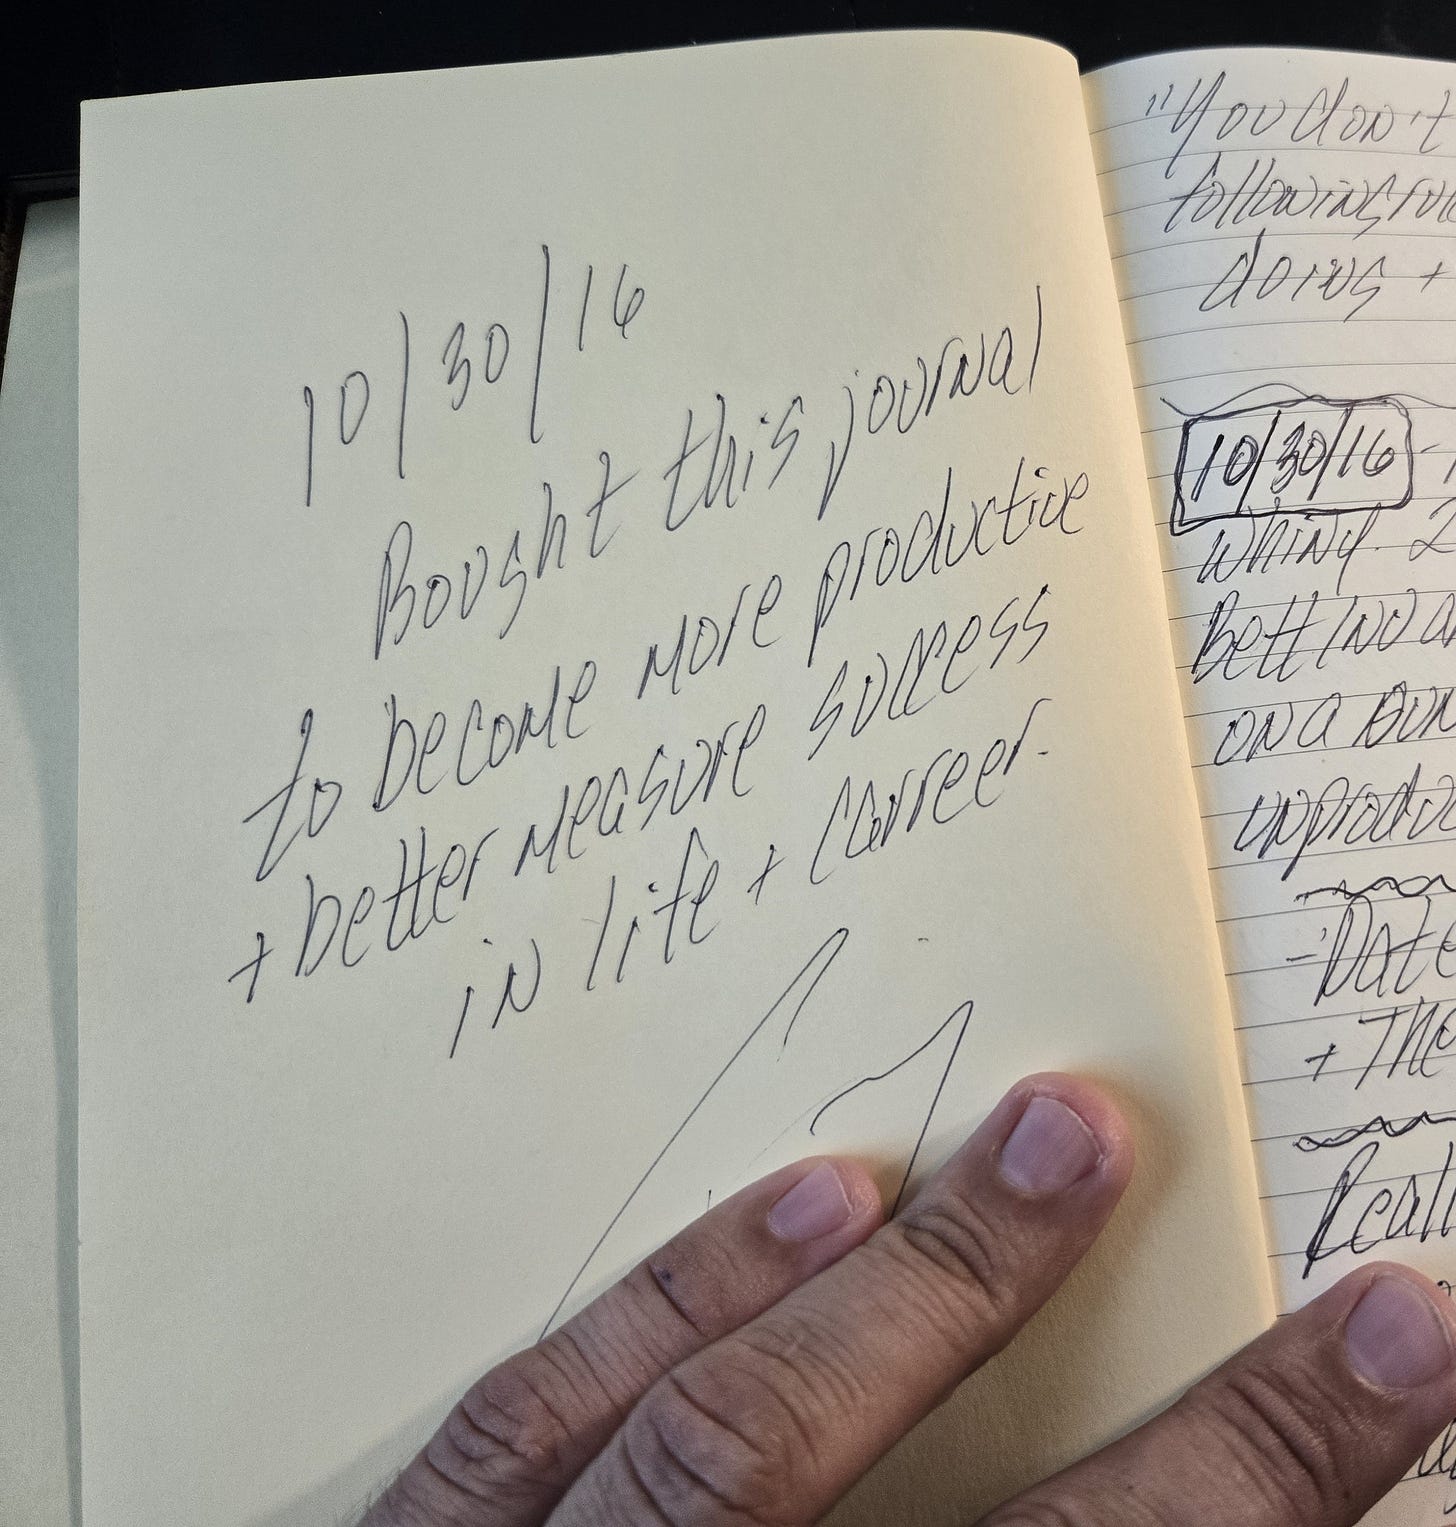 10/30/16
Bought this journal
to become more productive
+ better measure success
in life + Carreer.
"You don't
following
doing +
10/30/16 -
Whiny. 2
Bettino
on a
unproduc
- Date
+ The
Reall